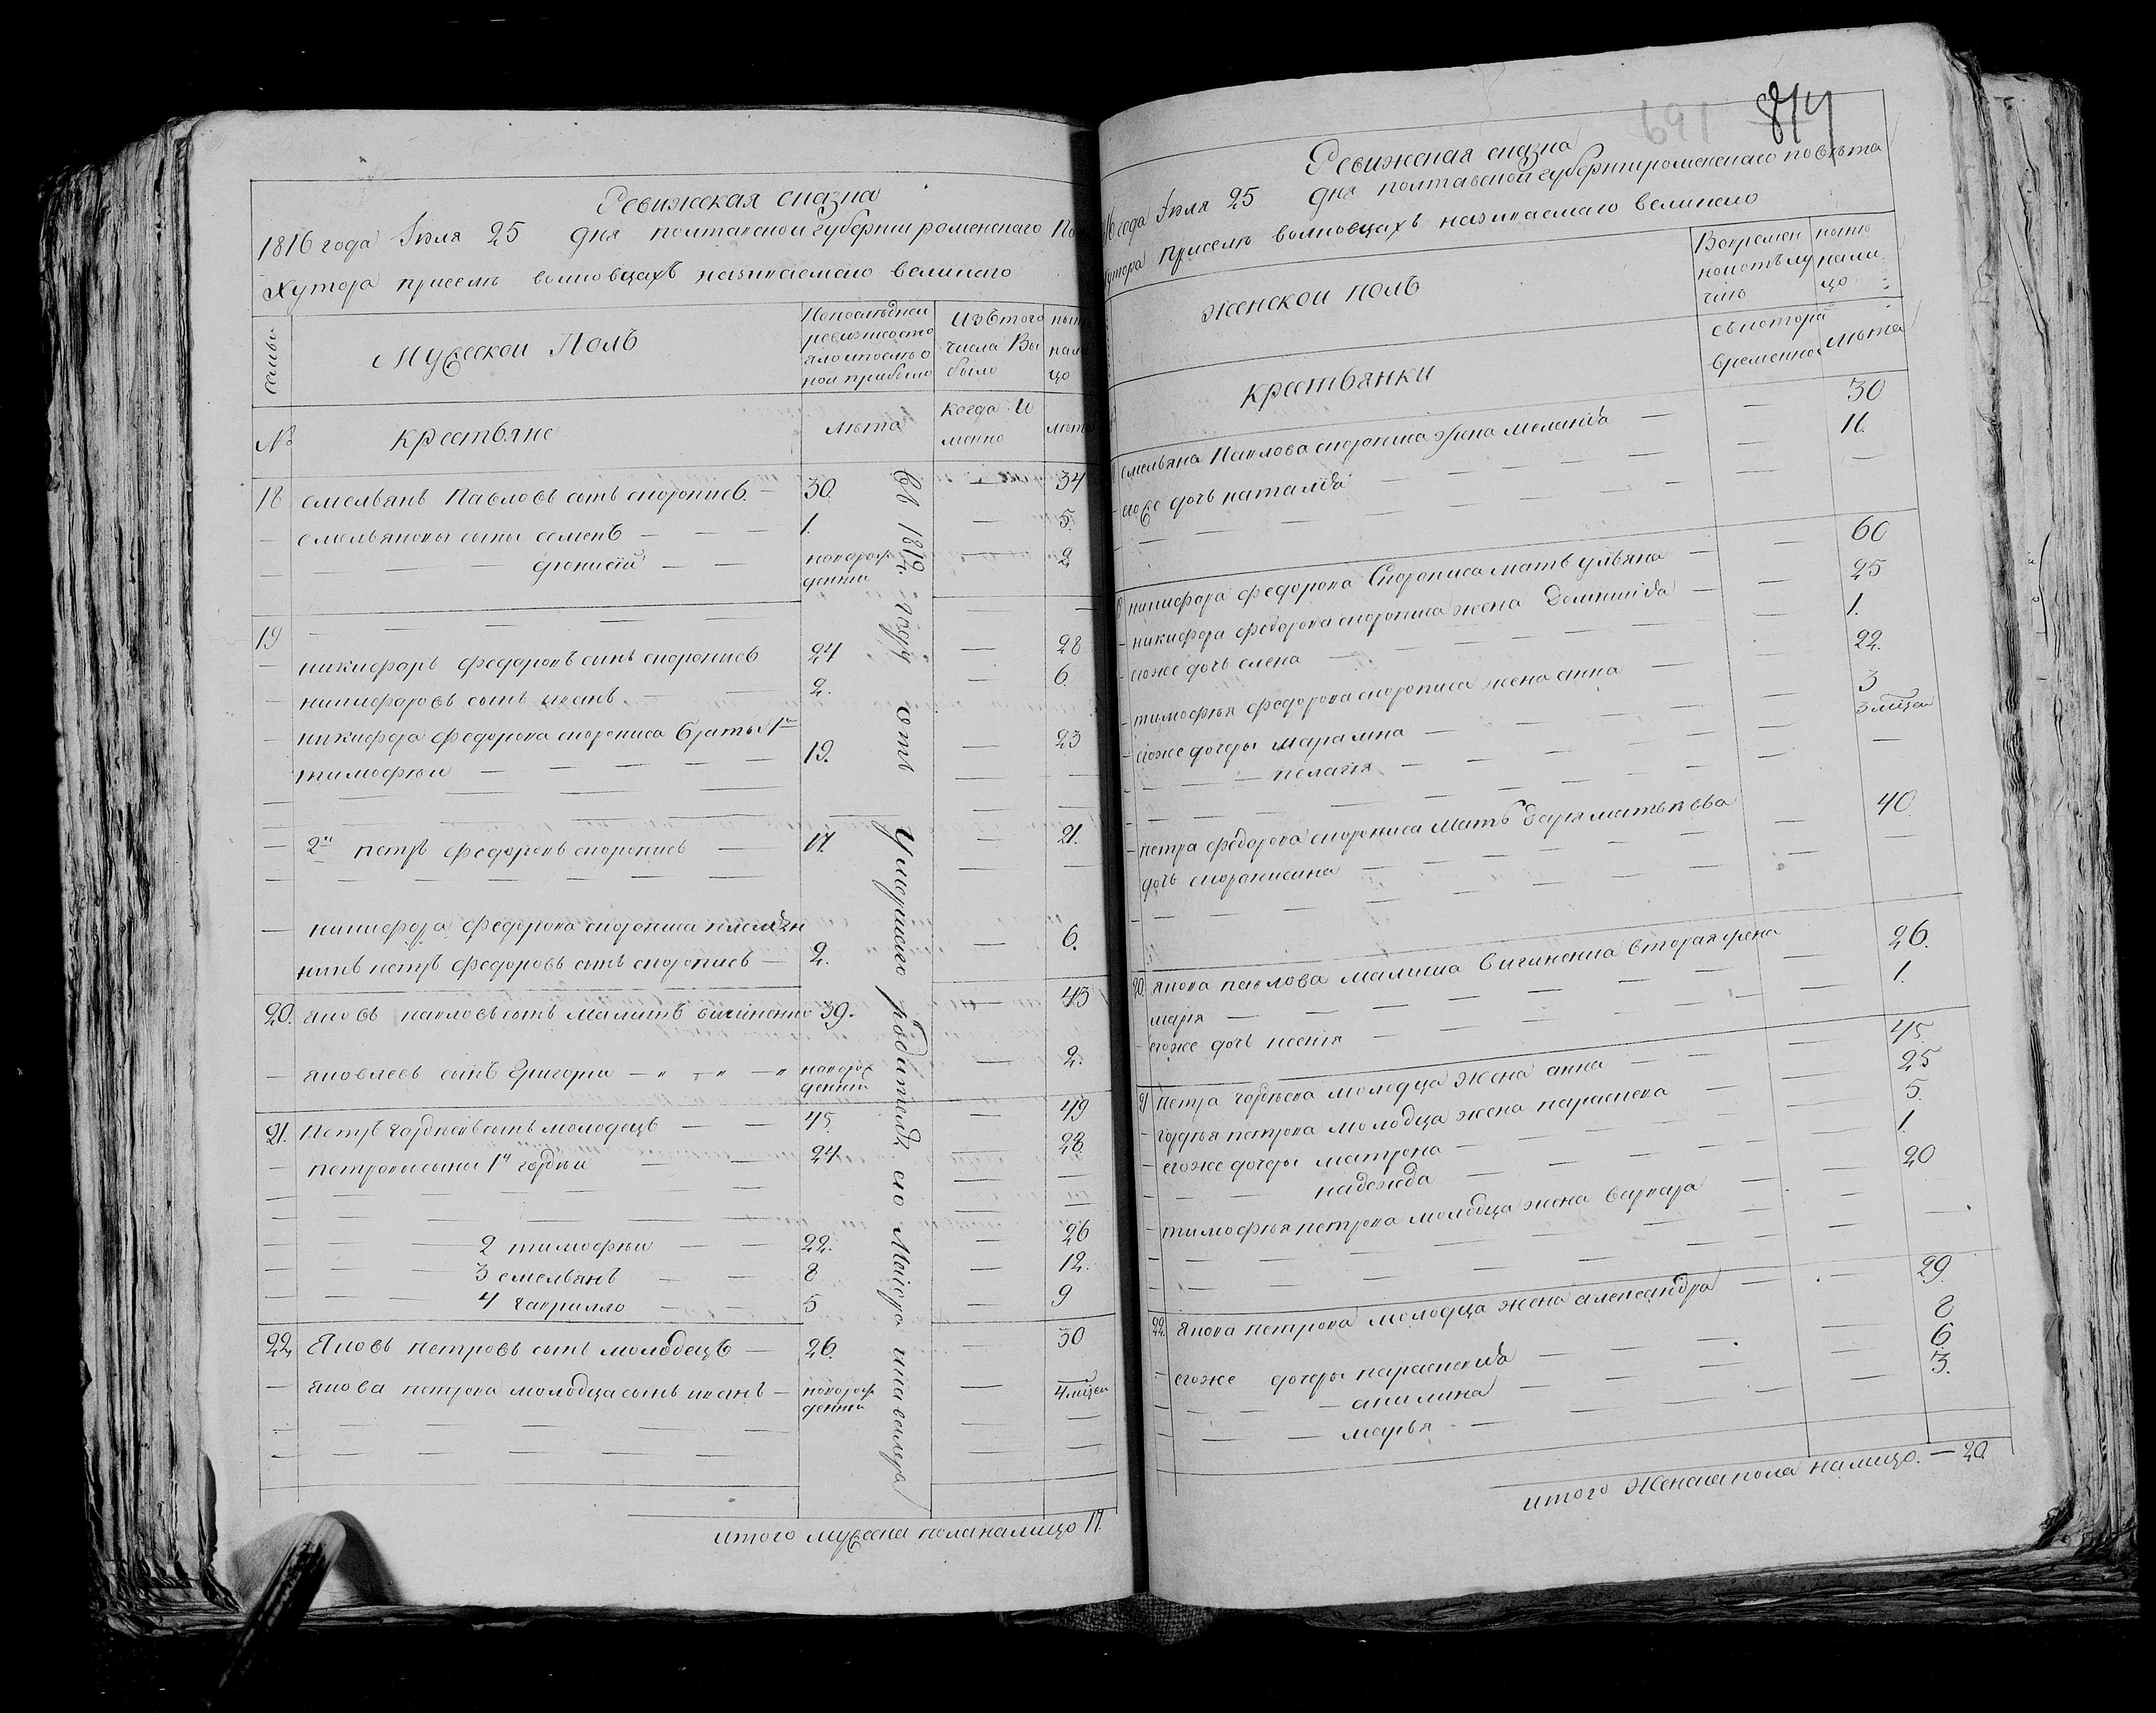 Ревижская сказка
1816 года Июля 25 дня полтавской губернии роменского По
Хутора приселѣ волковцахъ называемаго великого
семьи
Мужеской Полъ
Попоследней ревизии состояло и после оной прибыло
Изътого числа Выбыло
ныне налицо
№
крестьяне
лета
когда И менно
лета
18 емельянъ Павловъ сынъ скорописъ — 30. — 34
— емельяновы сыны семенъ — — — 1. — 5.
— — — — дионисій — — новорожденний — 2
19 — — — — —
— никифоръ федоровъ сынъ скорописъ 24 — 28
— никифоровъ сынъ иванъ — — 2. — 6.
— никифора федорова скорописа браты 1й
тимофей — — — — — 19. — 23
— 2й петръ федоровъ скорописъ — 17. — 21.
— никифора федорова скорописа племян
никъ петръ федоровъ сынъ скорописъ — 2. — 6.
20. яковъ павловъ сынъ малишъ 39. — 43
— яковлевъ сынъ григорий — „ — „ — „ новорожденний — 2.
21. Петръ гордѣевъ сынъ молодецъ — — 45. — 49
— петровы сыны 1й гордѣй — — 24 — 28
— — — 2 тимофей — — 22. — 26
— — — 3 емельянъ — — 8 — 12.
— — — 4 гаврилло — — 5 — 9
22. Яковъ петровъ сынъ молодецъ — 26. — 30
— якова петрова молодца сынъ иванъ — новорожденний — 4 мѣцей
Въ 1812. году отъ умершего родителя его Маіора
итого мужеска пола налицо 17.
691 814
Ревижская сказка
16 года Июля 25 дня полтавской губерни роменского повѣта
хутора приселѣ волковцахъ называемаго великого
женской полъ
Вовремен
ной отълу
чкѣ
ныне
нали
цо
крестьянки
съ котора
временно
лѣта
емельяна Павлова скорописа жена меланія — — 30
егоже дочь наталія — — — — 11.
никифора федорова Скорописа мать ульяна — — 60
— никифора федорова скорописа жена Домникія — — 25
— егоже дочь елена — — — — 1.
— тимофея федорова скорописа жена анна — — 22.
— егоже дочеры марина — — — 3
— — — пелагія — — — 3 мѣцей
— петра федорова скорописа Мать дарья матвѣева
дочь скорописина — — — 40.
20. якова павлова малиша вторая жена
марія — — — — 26.
— егоже дочь ксенія — — — 1.
21 петра гордѣева молодца жена анна — — 45.
— гордѣя петрова молодца жена параскева — — 25
— егоже дочеры матрона — — — 5.
— — — надежда — — — 1.
— тимофѣя петрова молодца жена варвара — — 20
22. якова петрова молодца жена александра — — 29.
— егоже дочеры параскевія — — — 8
— — — акилина — — — 6.
— — — марья — — — 3.
итого женска пола налицо. — 20.